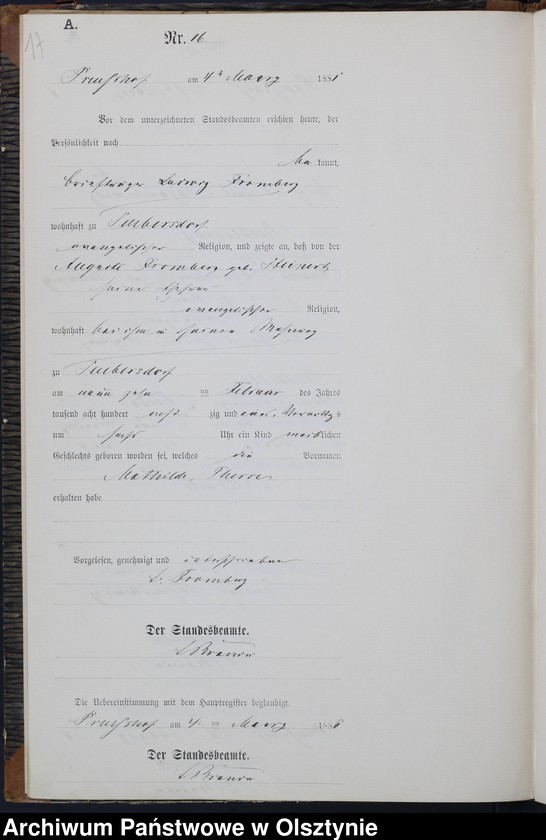 A.
17
Nr. 16.
am 4ten Maerz 1881
Vor dem unterzeichneten Standesbeamten erschien heute, der
Persönlichkeit nach
kannt,
Ludwig Fromberg
wohnhaft zu
evangelischer Religion, und zeigte an, daß von der
Auguste Fromberg geb.
seine Ehefrau
evangelischer Religion,
wohnhaft bei ihm in seiner Wohnung
zu
am neun zehn ten Februar des Jahres
tausend acht hundert acht zig und eins, Vormittags
um sechs Uhr ein Kind weiblichen
Geschlechts geboren worden sei, welches die Vornamen
Mathilde, Therese
erhalten habe
Vorgelesen, genehmigt und unterschrieben
L. Fromberg
Der Standesbeamte.
Die Uebereinstimmung mit dem Hauptregister beglaubigt.
am 4. ten Maerz 1881
Der Standesbeamte.
Archiwum Państwowe w Olsztynie